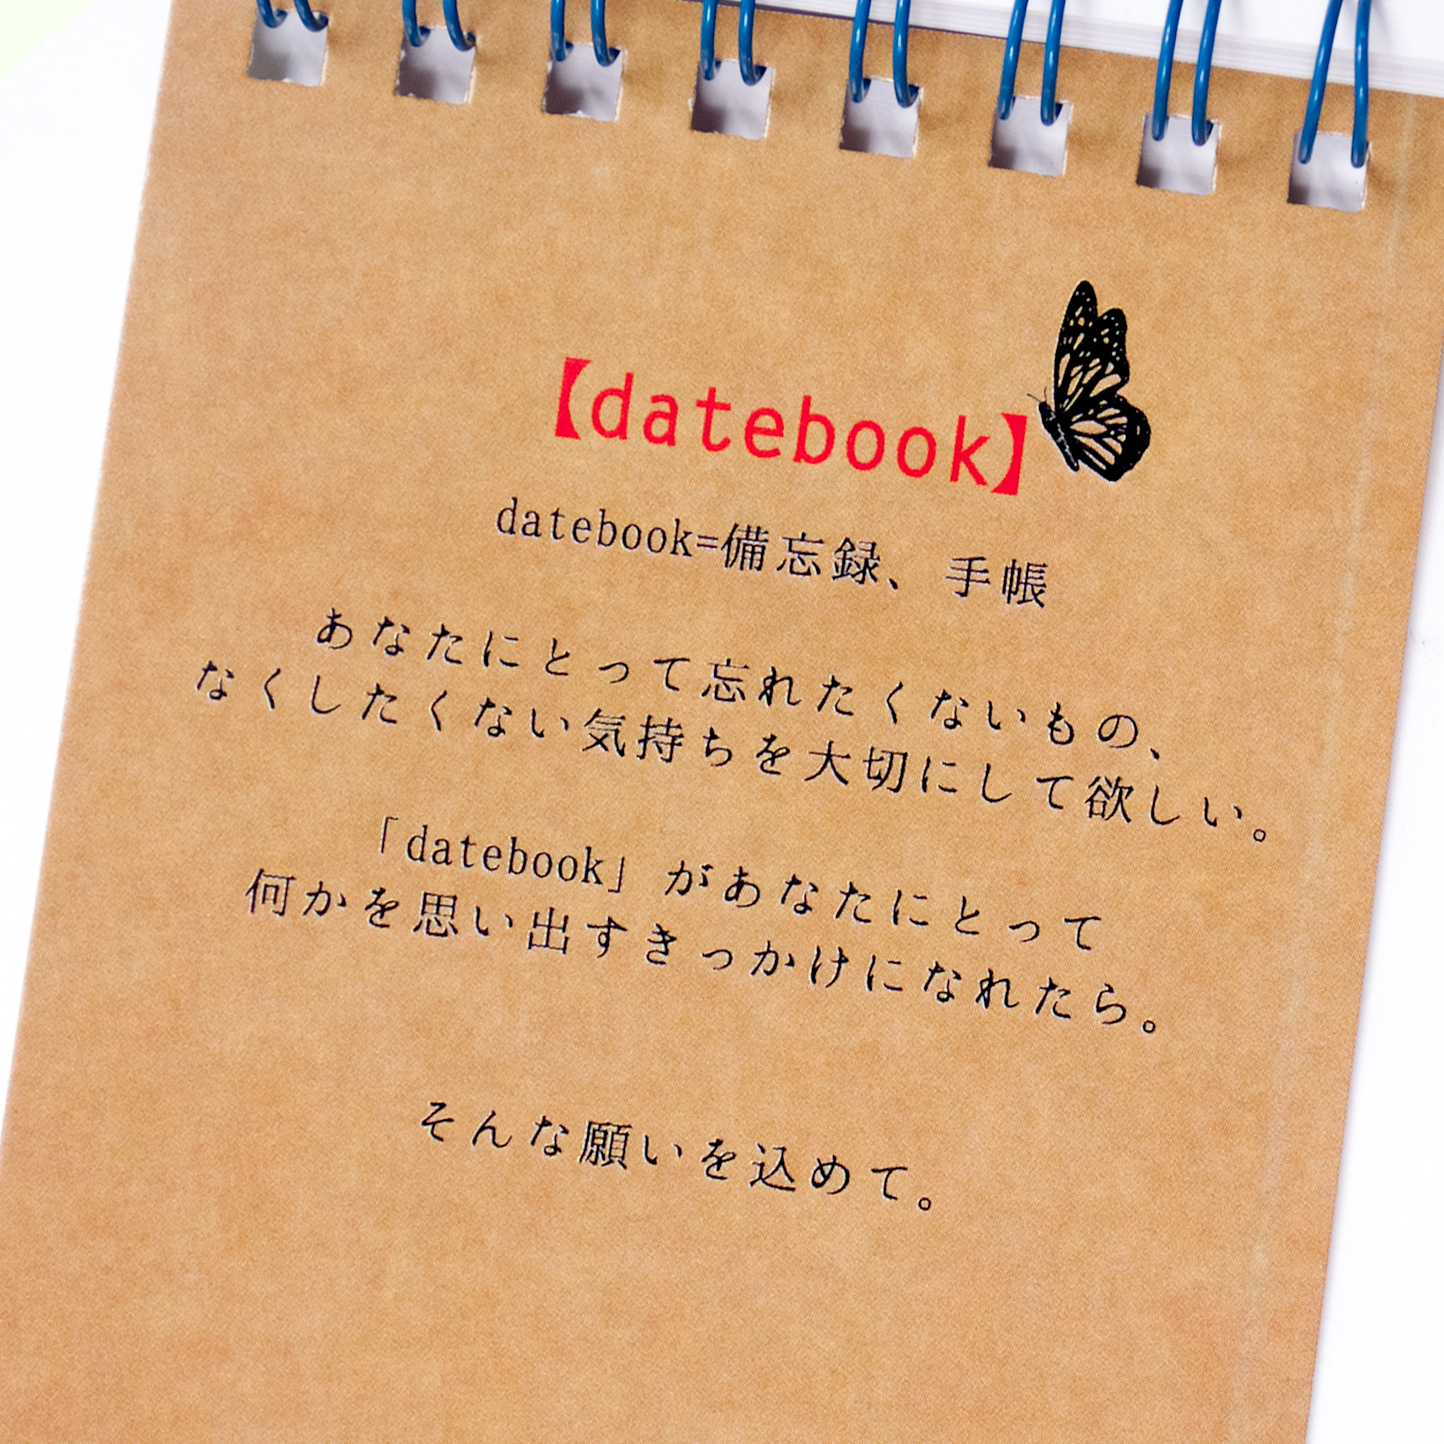 【datebook】
datebook=備忘録、手帳
あなたにとって忘れたくないもの、
なくしたくない気持ちを大切にして欲しい。
「datebook」があなたにとって
何かを思い出すきっかけになれたら。
そんな願いを込めて。